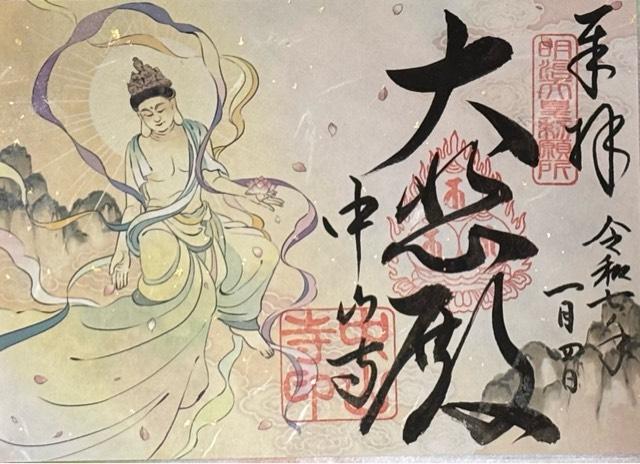 奉拝
明治天皇勅願所
令和七年
一月四日
大悲殿
中山寺
中山
寺印